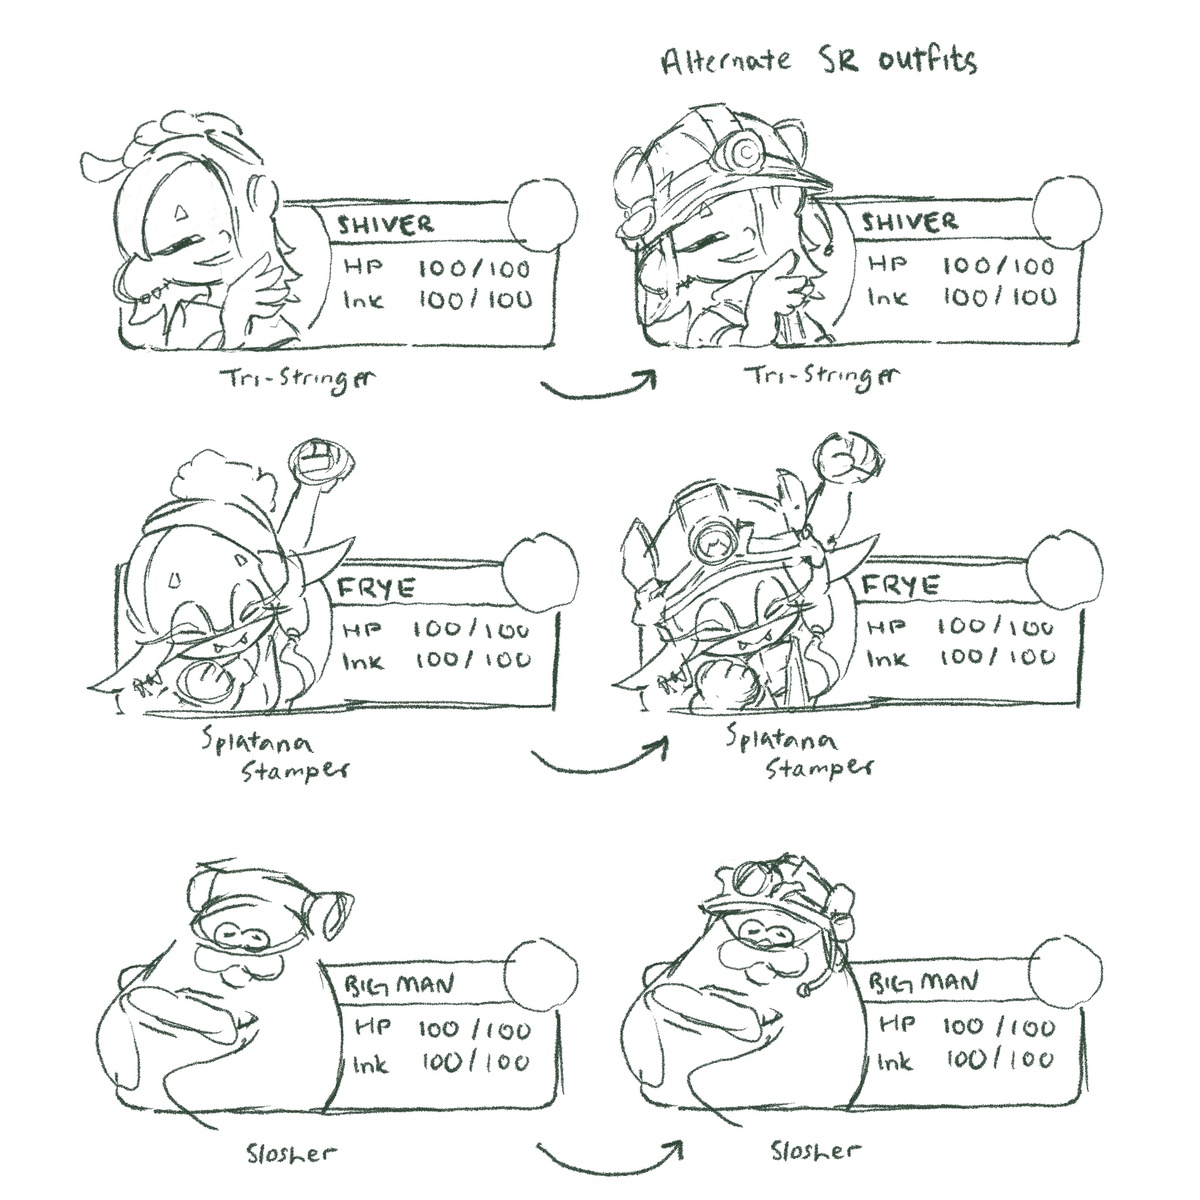 Alternate SR outfits
SHIVER
HP 100/100
Ink 100/100
Tri-Stringer
SHIVER
HP 100/100
Ink 100/100
Tri-Stringer
FRYE
HP 100/100
Ink 100/100
Splatana
Stamper
FRYE
HP 100/100
Ink 100/100
Splatana
Stamper
BIG MAN
HP 100/100
Ink 100/100
Slosher
BIG MAN
HP 100/100
Ink 100/100
Slosher